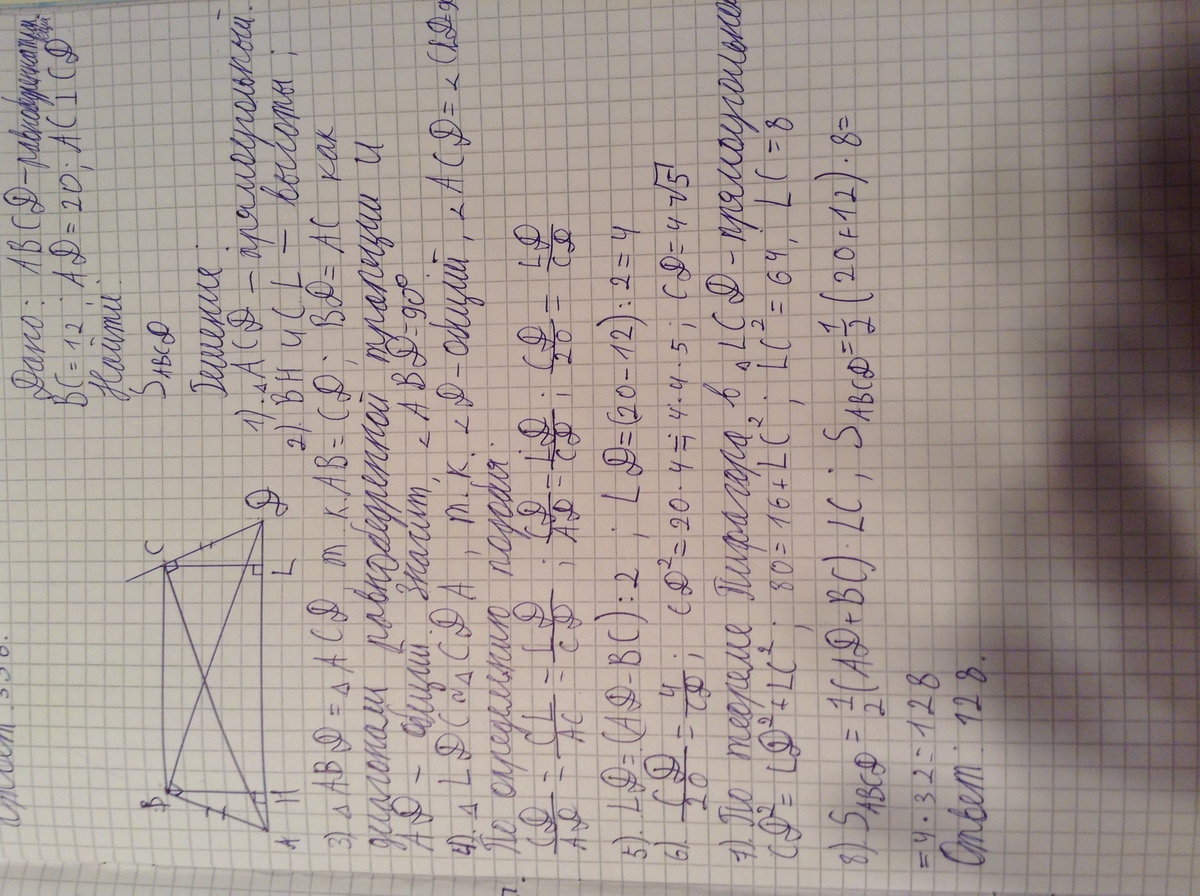 Дано: ABCD – равнобедренная
BC = 12; AD = 20; AC ⊥ CD
Найти:
S_ABCD
Решение
B
C
A
H
L
D
1). △ACD – прямоугольный.
2). BH и CL – высоты;
3) △ABD = △ACD т.к. AB = CD; BD = AC как
диагонали равнобедренной трапеции и
AD – общий. Значит, ∠ABD = 90°
4). △LDC ~ △CDA, т.к. ∠D – общий, ∠ACD = ∠CLD = 9
По определению подобия:
CD/AD = CL/AC = LD/CD; CD/AD = LD/CD; CD/20 = LD/CD
5). LD = (AD – BC) : 2; LD = (20 – 12) : 2 = 4
6). CD/20 = 4/CD; CD² = 20 · 4 = 4 · 4 · 5; CD = 4√5
7). По теореме Пифагора в △LCD – прямоугольном
CD² = LD² + LC²; 80 = 16 + LC²; LC² = 64; LC = 8
8) S_ABCD = 1/2 (AD + BC) · LC; S_ABCD = 1/2 (20 + 12) · 8 =
= 4 · 32 = 128
Ответ: 128.